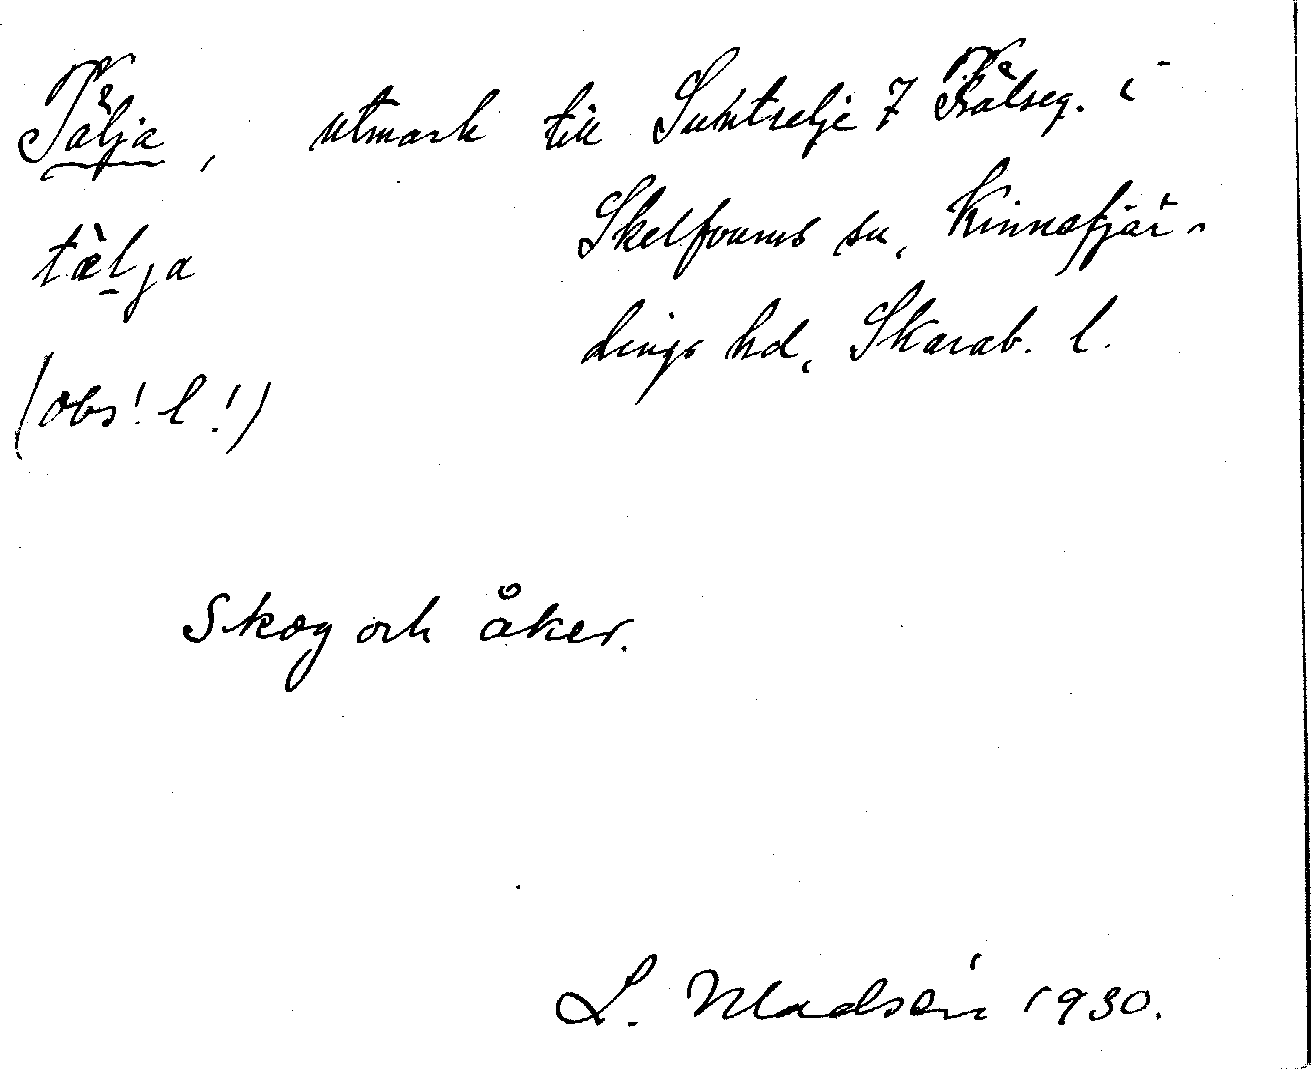 Tälja, utmark till Suntetselje 7 Kålseg. i
tälja Skelfvums sn, Kinnefjär-
dings hd, Skarab. l.
(obs! l!)
Skog och åker.
L. Madsén 1930.